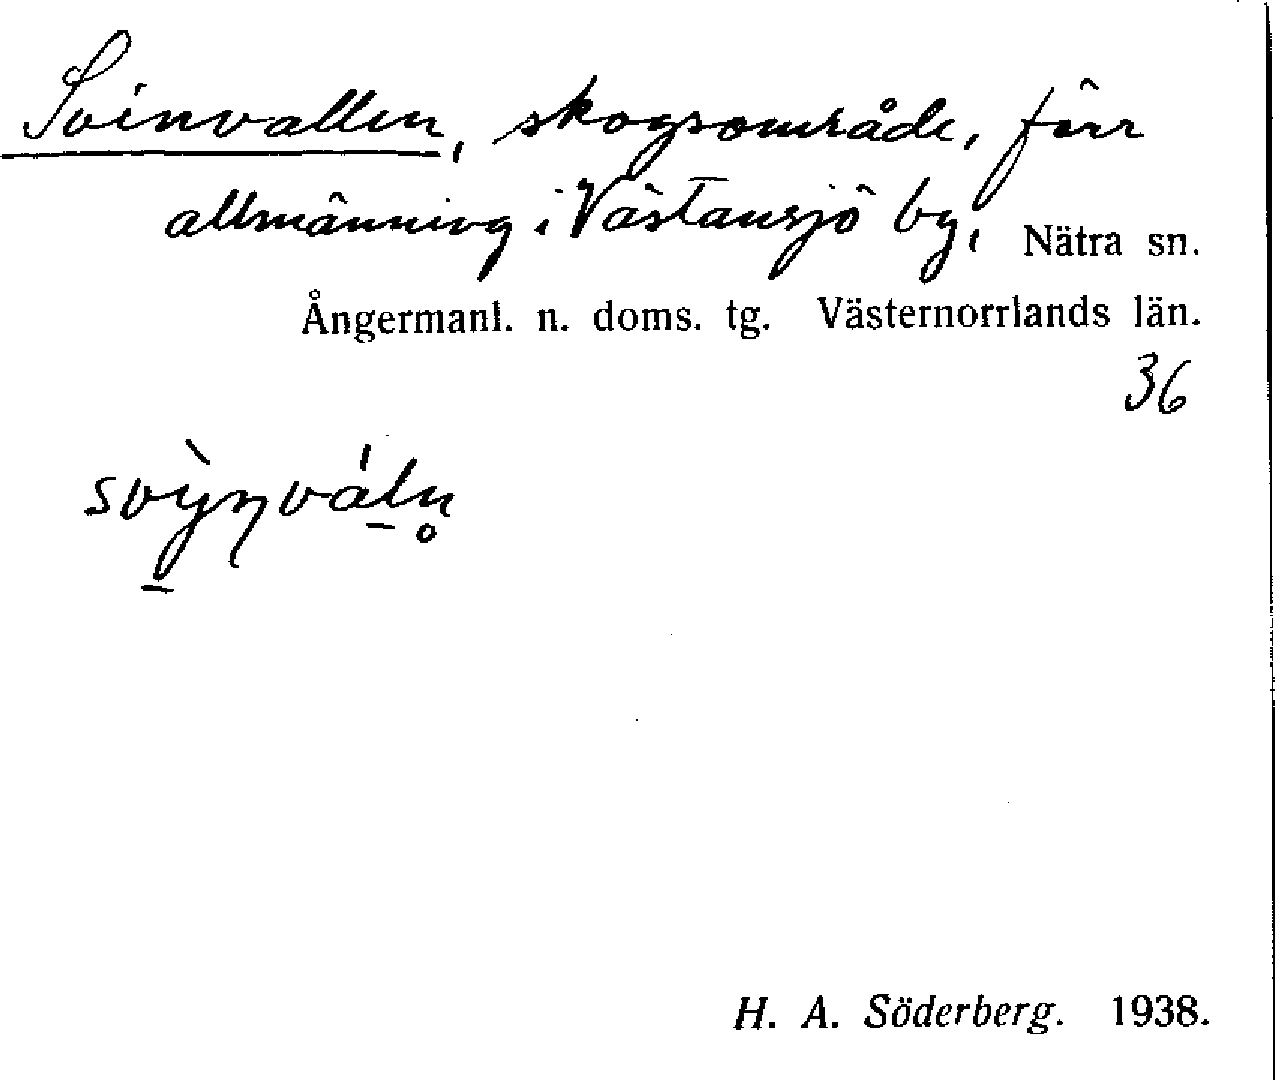 Svinvallen, skogsområde, förr
allmänning i Västansjö by, Nätra sn.
Ångermanl. n. doms. tg. Västernorrlands län.
36
H. A. Söderberg. 1938.